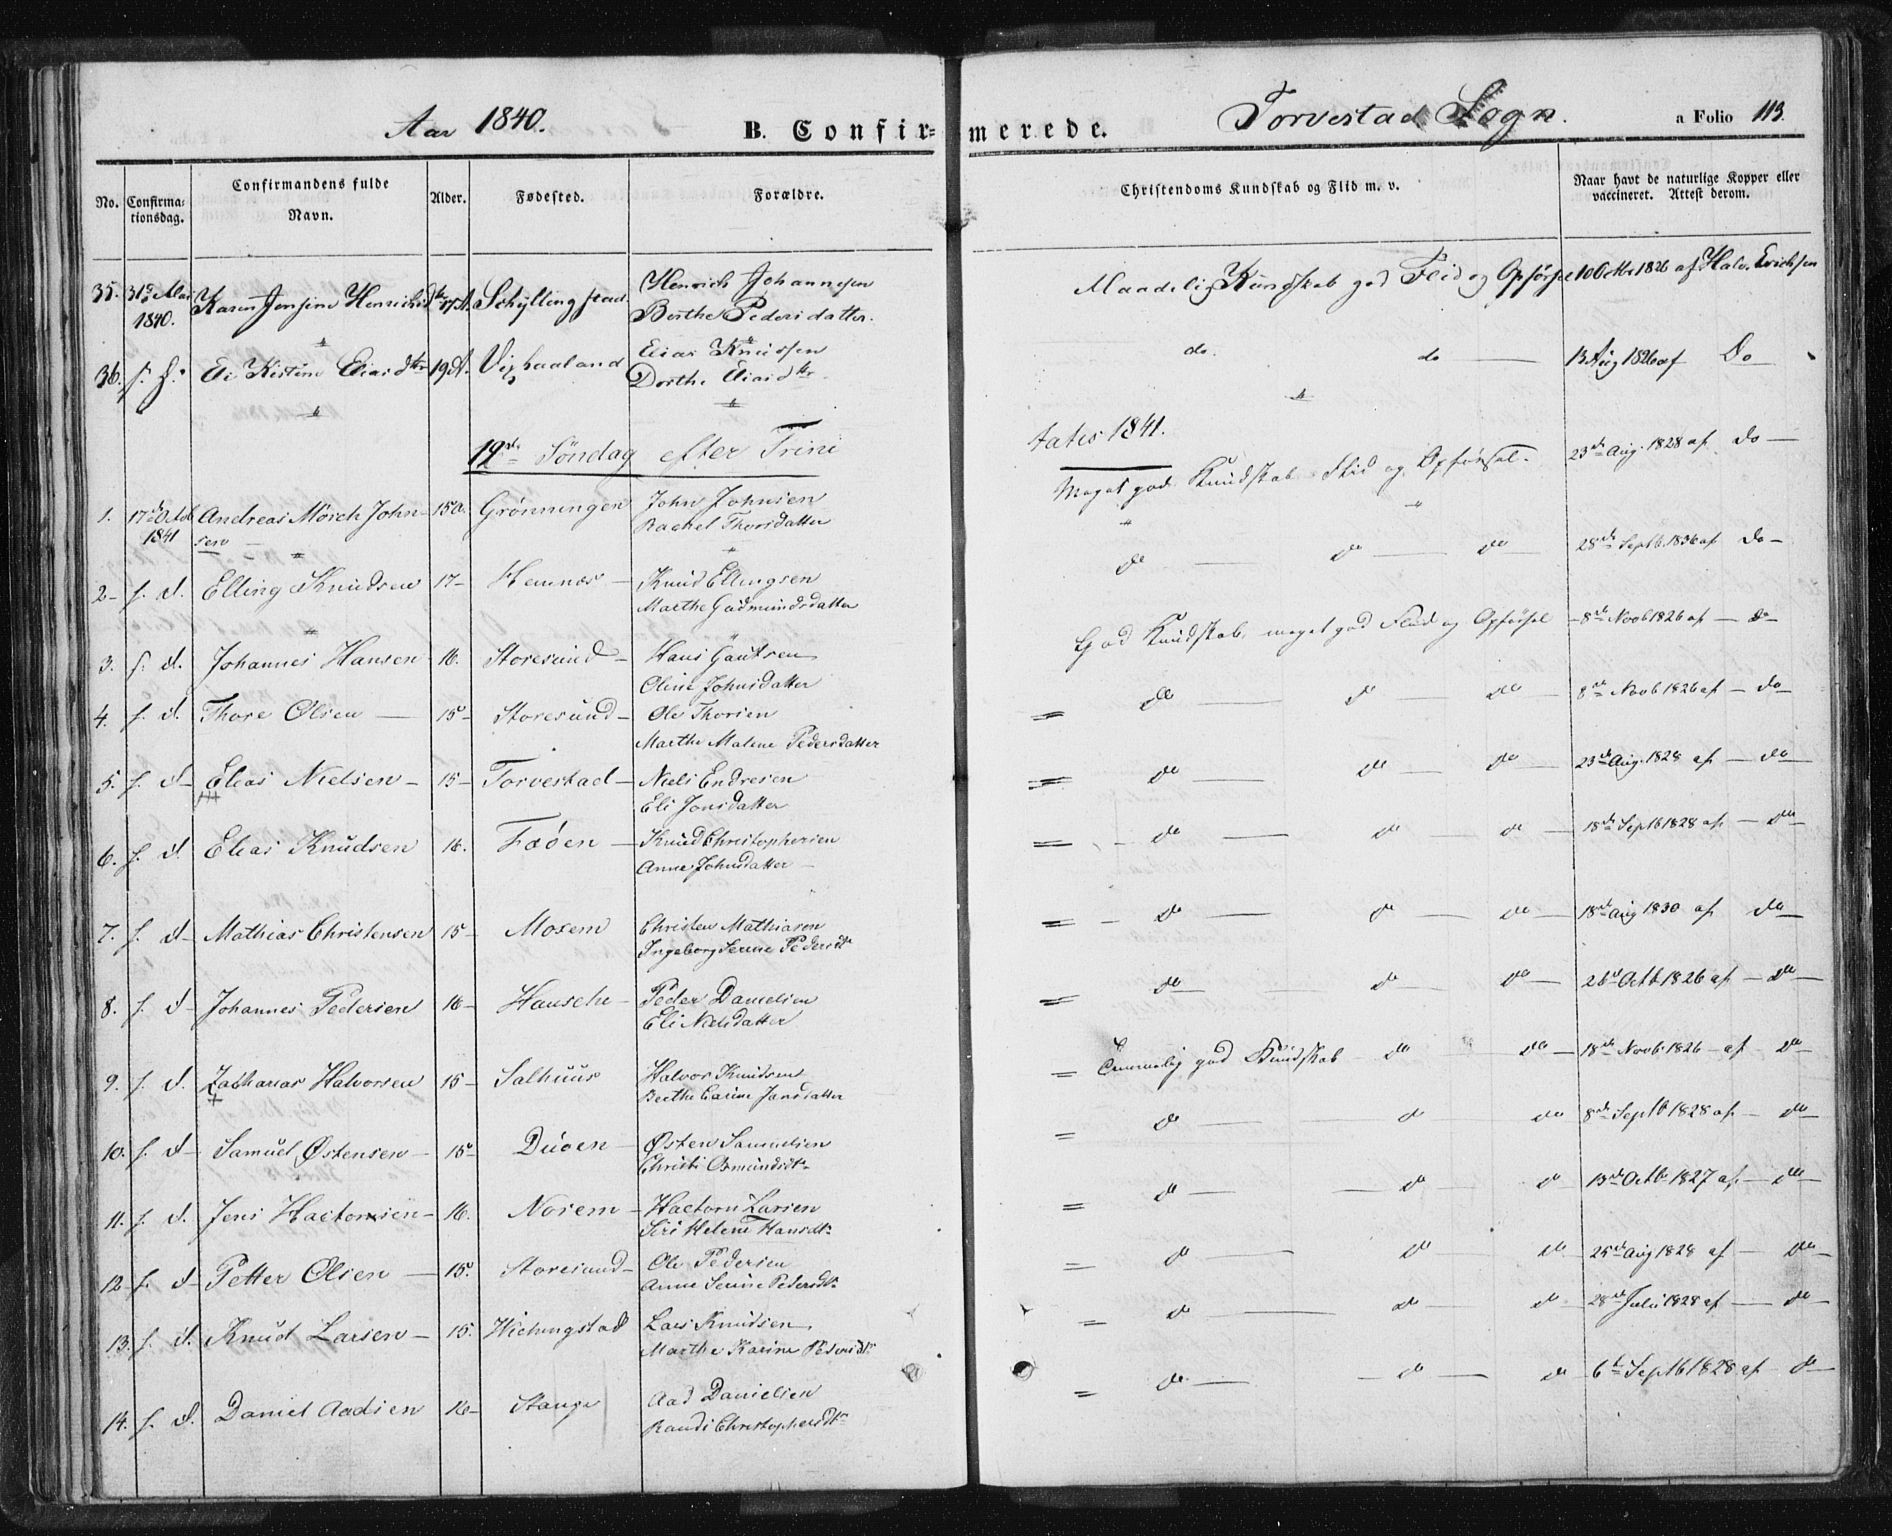 Aar 1840. B. Confir= merede. Torvestad Sogn. a Folio 113.
No. Confirma-tionsdag. Confirmandens fulde Navn. Alder. Fødested. Forældre. Christendoms Kundskab og Flid m. v. Naar havt de naturlige Kopper eller vaccineret. Attest derom.
35. 31te Mai 1840. Karen Jensine Henrichsdtr 17 A. Henrich Johannesen Maadelig Kundskab god Flid og Opførsel 10 Octbr 1826 af Halv. Erichsen
Berthe Pedersdatter.
36. f. d. Kistine Eliasdtr 19 A. Elias Knudsen do. do 13 Aug 1826 af Do
Dorthe Eliasdtr
19de Söndag efter Trini tatis 1841.
1. 17de Octb 1841 Andreas Mørch John- 15 a. Grönningen John Johnsen Meget god Kundskab Flid og Opförsel. 23de Aug. 1828 af do
sen Rachel Thorsdatter
2 f. d. Elling Knudsen 17 Knud Ellingsen do do do 28de Septb. 1836 af do
Marthe Gudmundsdatter
3. f. d. Johannes Hansen 16. Storesund Hans Gautsen God Kundskab, meget god Flid og Opförsel 8de Novb 1826 af do
Oline Johnsdatter
4. f. d. Thore Olsen 15 Storesund Ole Thorsen do do do 8de Novb 1826 af do
Marthe Malene Pedersdatter
5. f. d Elias Nielsen 15 Torvestad Niels Endresen do do do 23de Aug. 1828 af do
Eli Jonsdatter
6. f. d. Elias Knudsen 16. Fæöen Knud Christophersen do do do 18de Septb 1828 af do
Anne Johnsdatter
7. f. d Mathias Christensen 15 Moxem Christen Mathiasen do do do 18de Aug 1830 af do
Ingeborg Serine Pedersdtr
8. f. d Johannes Pedersen 16 Hauske Peder Danielsen do do do 26de Octb 1826 af do
Eli Nielsdatter
9. f. d. Zacharias Halvorsen 15 Salhuus Halvor Knudsen Temmelig god Kundskab do do 18de Novb 1826 af do
Berthe Carine Jansdatter
10. f. d Samuel Østensen 15 Østen Samuelsen do do do 8de Septb 1828 af do
Christi Osmundsdtr
11. f. d. Jens Hactorsen 16. Norem Hactorn Larsen do do do 13de Octb 1827 af do
Siri Helene Hansdtr
12 f. d Petter Olsen 15. Storesund Ole Pedersen do do do 25de Aug 1828 af do
Anne Serine Pedersdtr
13. f. d. Knud Larsen 15. Lars Knudsen do do do 28de Juli 1828 af do
Marthe Karine Pedersdtr
14. f. d. Daniel Aadsen 16 Stange Aad Danielsen do do do 6te Septb 1828 af do
Randi Christophersdtr